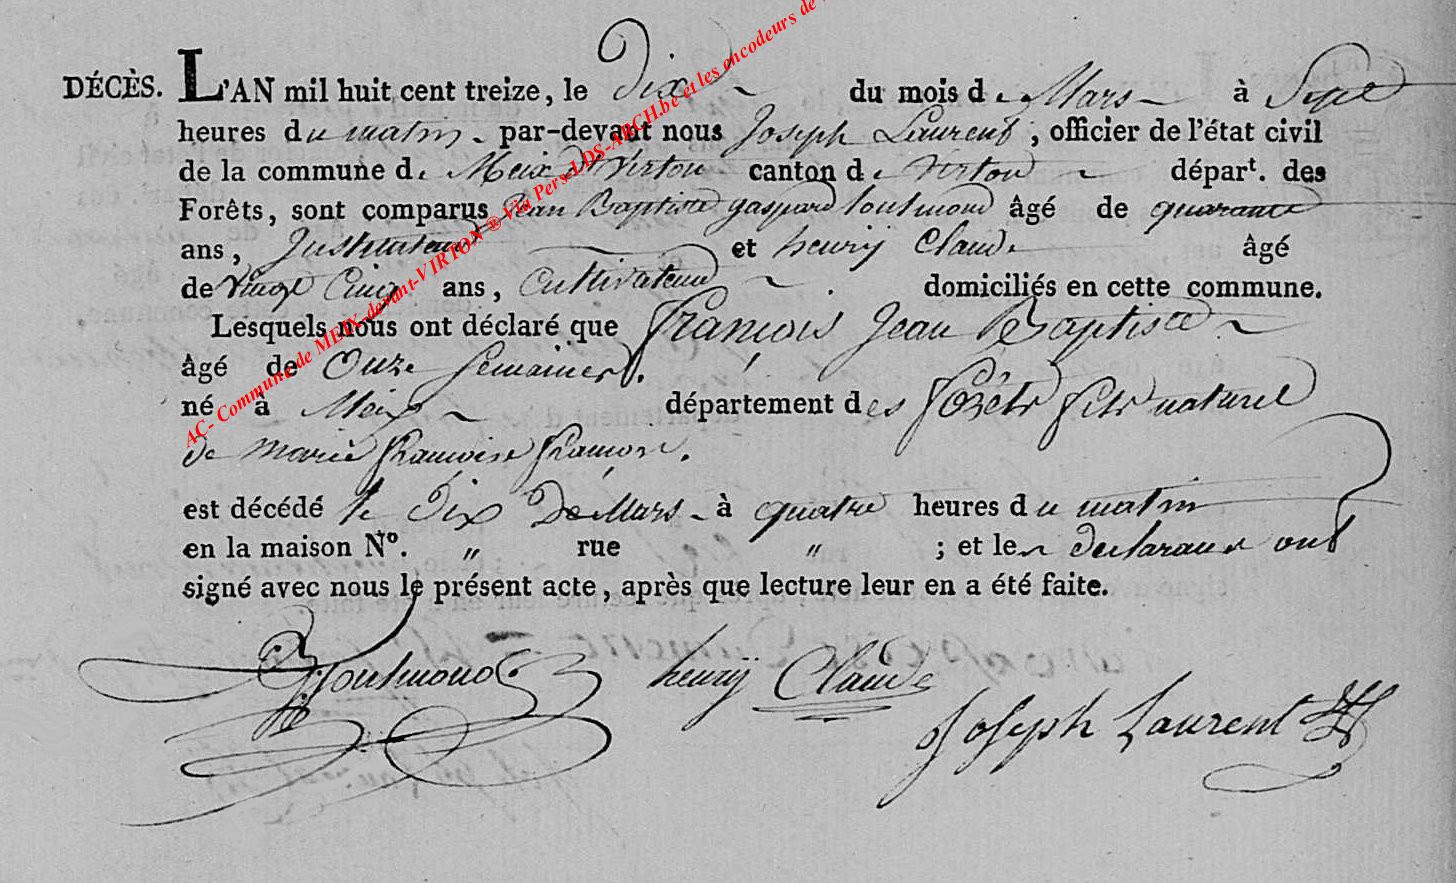 DÉCÈS. L'AN mil huit cent treize, le Dix du mois de Mars à Sept
heures du matin par-devant nous Joseph Laurent, officier de l'état civil
de la commune de Meix dt Virton canton de Virton départ. des
Forêts, sont comparus Jean Baptiste gaspard toutmond âgé de quarante
ans, Instituteur et henrÿ Claude âgé
de Vingt Cinq ans, Cultivateur domiciliés en cette commune.
Lesquels nous ont déclaré que François Jean Baptiste
âgé de Onze Semaines.
né à Meix département des forêts fils naturel
de marie françoise françois.
est décédé le Dix De Mars à quatre heures du matin
en la maison No. " rue " ; et les declarants ont
signé avec nous le présent acte, après que lecture leur en a été faite.
toutmond henrÿ Claude
Joseph Laurent
AC- Commune de MEIX-devant-VIRTON ® Via Pers-LDS-ARCH.be et les encodeurs de